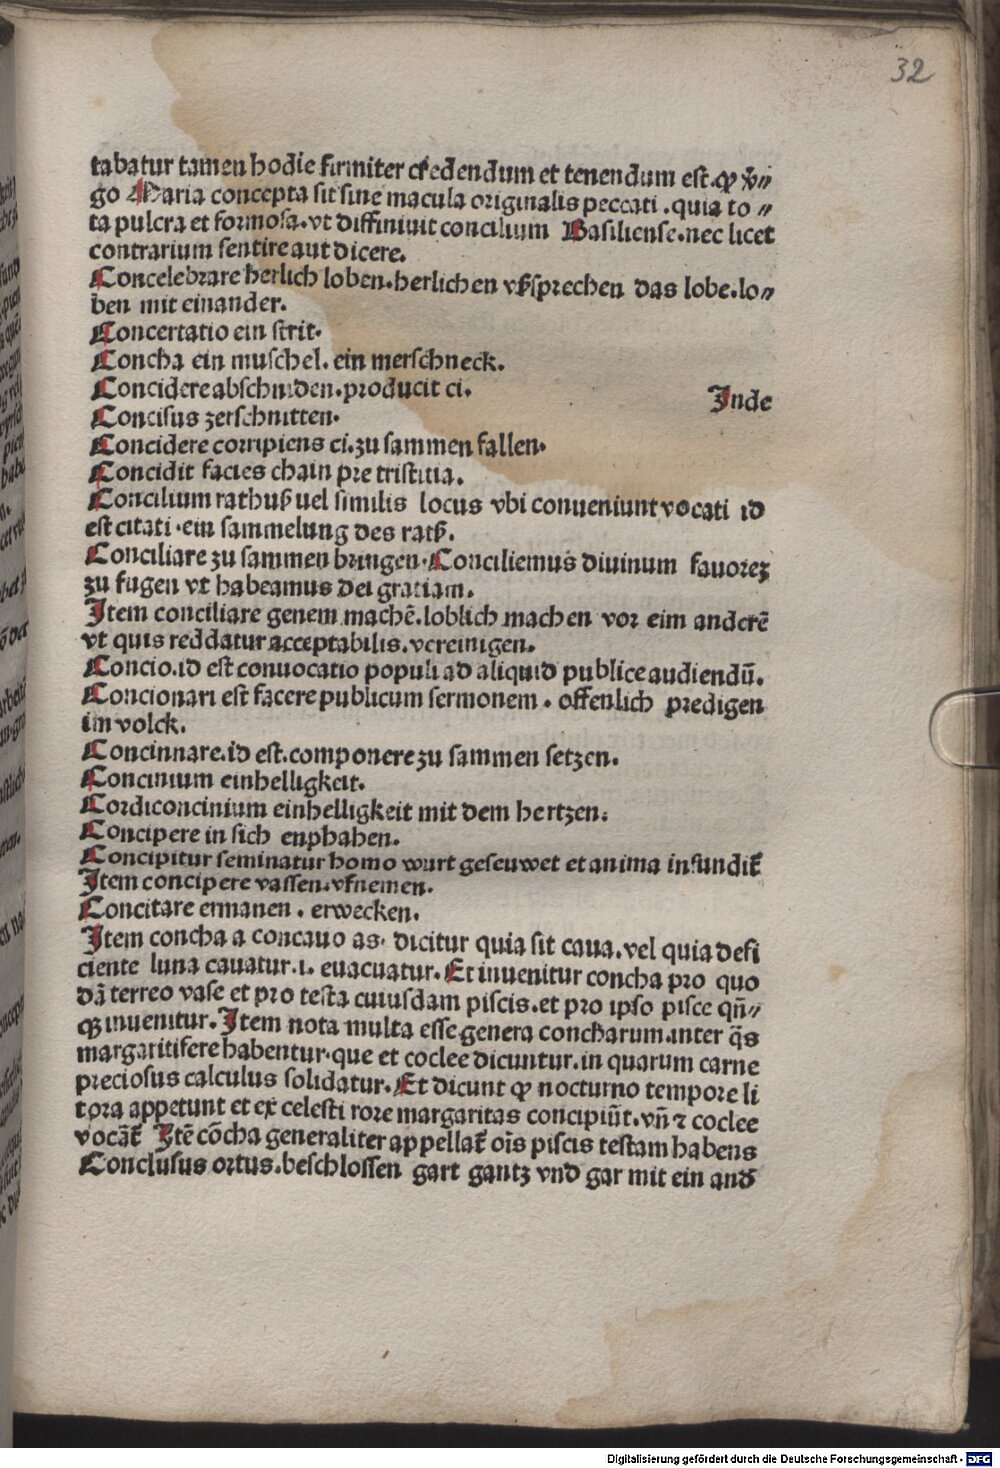 32
tabatur tamen hodie firmiter credendum et tenendum est.ꝙ v̄i⸗
go Maria concepta sit sine macula originalis peccati .quia to⸗
ta pulcra et formosa.vt diffiniuit concilium Basiliense.nec licet
contrarium sentire aut dicere.
Concelebrare herlich loben.herlichen vßsprechen das lobe.lo⸗
ben mit einander.
Concertatio ein strit.
Concha ein muschel.ein merschneck.
Concidere abschniden.producit ci. Inde
Concisus zerschnitten.
Concidere corripiens ci.zu sammen fallen.
Concidit facies chain pre tristitia.
Concilium rathuß uel similis locus vbi conueniunt vocati id
est citati.ein sammelung des ratß.
Conciliare zu sammen bringen.Conciliemus diuinum fauorez
zu fugen vt habeamus dei gratiam.
Item conciliare genem machē.loblich machen vor eim anderē
vt quis reddatur acceptabilis.vereinigen.
Concio.id est conuocatio populi ad aliquid publice audiendū.
Concionari est facere publicum sermonem . offenlich predigen
im volck.
Concinnare.id est.componere zu sammen setzen.
Concinium einhelligkeit.
Cordiconcinium einhelligkeit mit dem hertzen.
Concipere in sich enphahen.
Concipitur seminatur homo wurt geseuwet et anima infundit᷑
Item concipere vassen.vfnemen.
Concitare ermanen . erwecken.
Item concha a concauo as. dicitur quia sit caua.vel quia defi
ciente luna cauatur.i. euacuatur.Et inuenitur concha pro quo
dā terreo vase et pro testa cuiusdam piscis.et pro ipso pisce qn̄⸗
ꝙ inuenitur.Item nota multa esse genera concharum.inter q̄s
margaritifere habentur.que et coclee dicuntur.in quarum carne
preciosus calculus solidatur.Et dicunt ꝙ nocturno tempore li
tora appetunt et ex celesti rore margaritas concipiūt.vn̄ ⁊ coclee
vocāt᷑ Itē cōcha generaliter appellat᷑ oīs piscis testam habens
Conclusus ortus.beschlossen gart gantz vnd gar mit ein and᷑
Digitalisierung gefördert durch die Deutsche Forschungsgemeinschaft - DFG